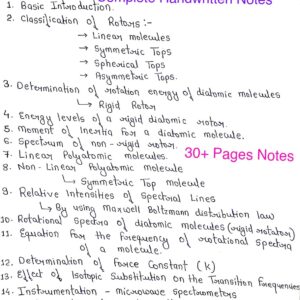 Complete Handwritten Notes
1. Basic Introduction.
2. Classification of Rotors :-
→ Linear molecules
→ Symmetric Tops
→ Spherical Tops
→ Asymmetric Tops.
3. Determination of rotation energy of diatomic molecules
↳ Rigid Rotor
4. Energy levels of a rigid diatomic rotor.
5. Moment of Inertia for a diatomic molecule.
6. Spectrum of non-rigid rotor.
7. Linear Polyatomic molecules.
30+ Pages Notes
8. Non-Linear Polyatomic molecule
↳ Symmetric Top molecule
9. Relative Intensities of Spectral Lines
↳ By using maxwell Boltzmann distribution law
10. Rotational Spectra of diatomic molecules (rigid rotator)
11. Equation for the Frequency of rotational spectra
of a molecule.
12. Determination of Force Constant (K)
13. Effect of Isotopic Substitution on the Transition Frequencies
14. Instrumentation - microwave spectrometers